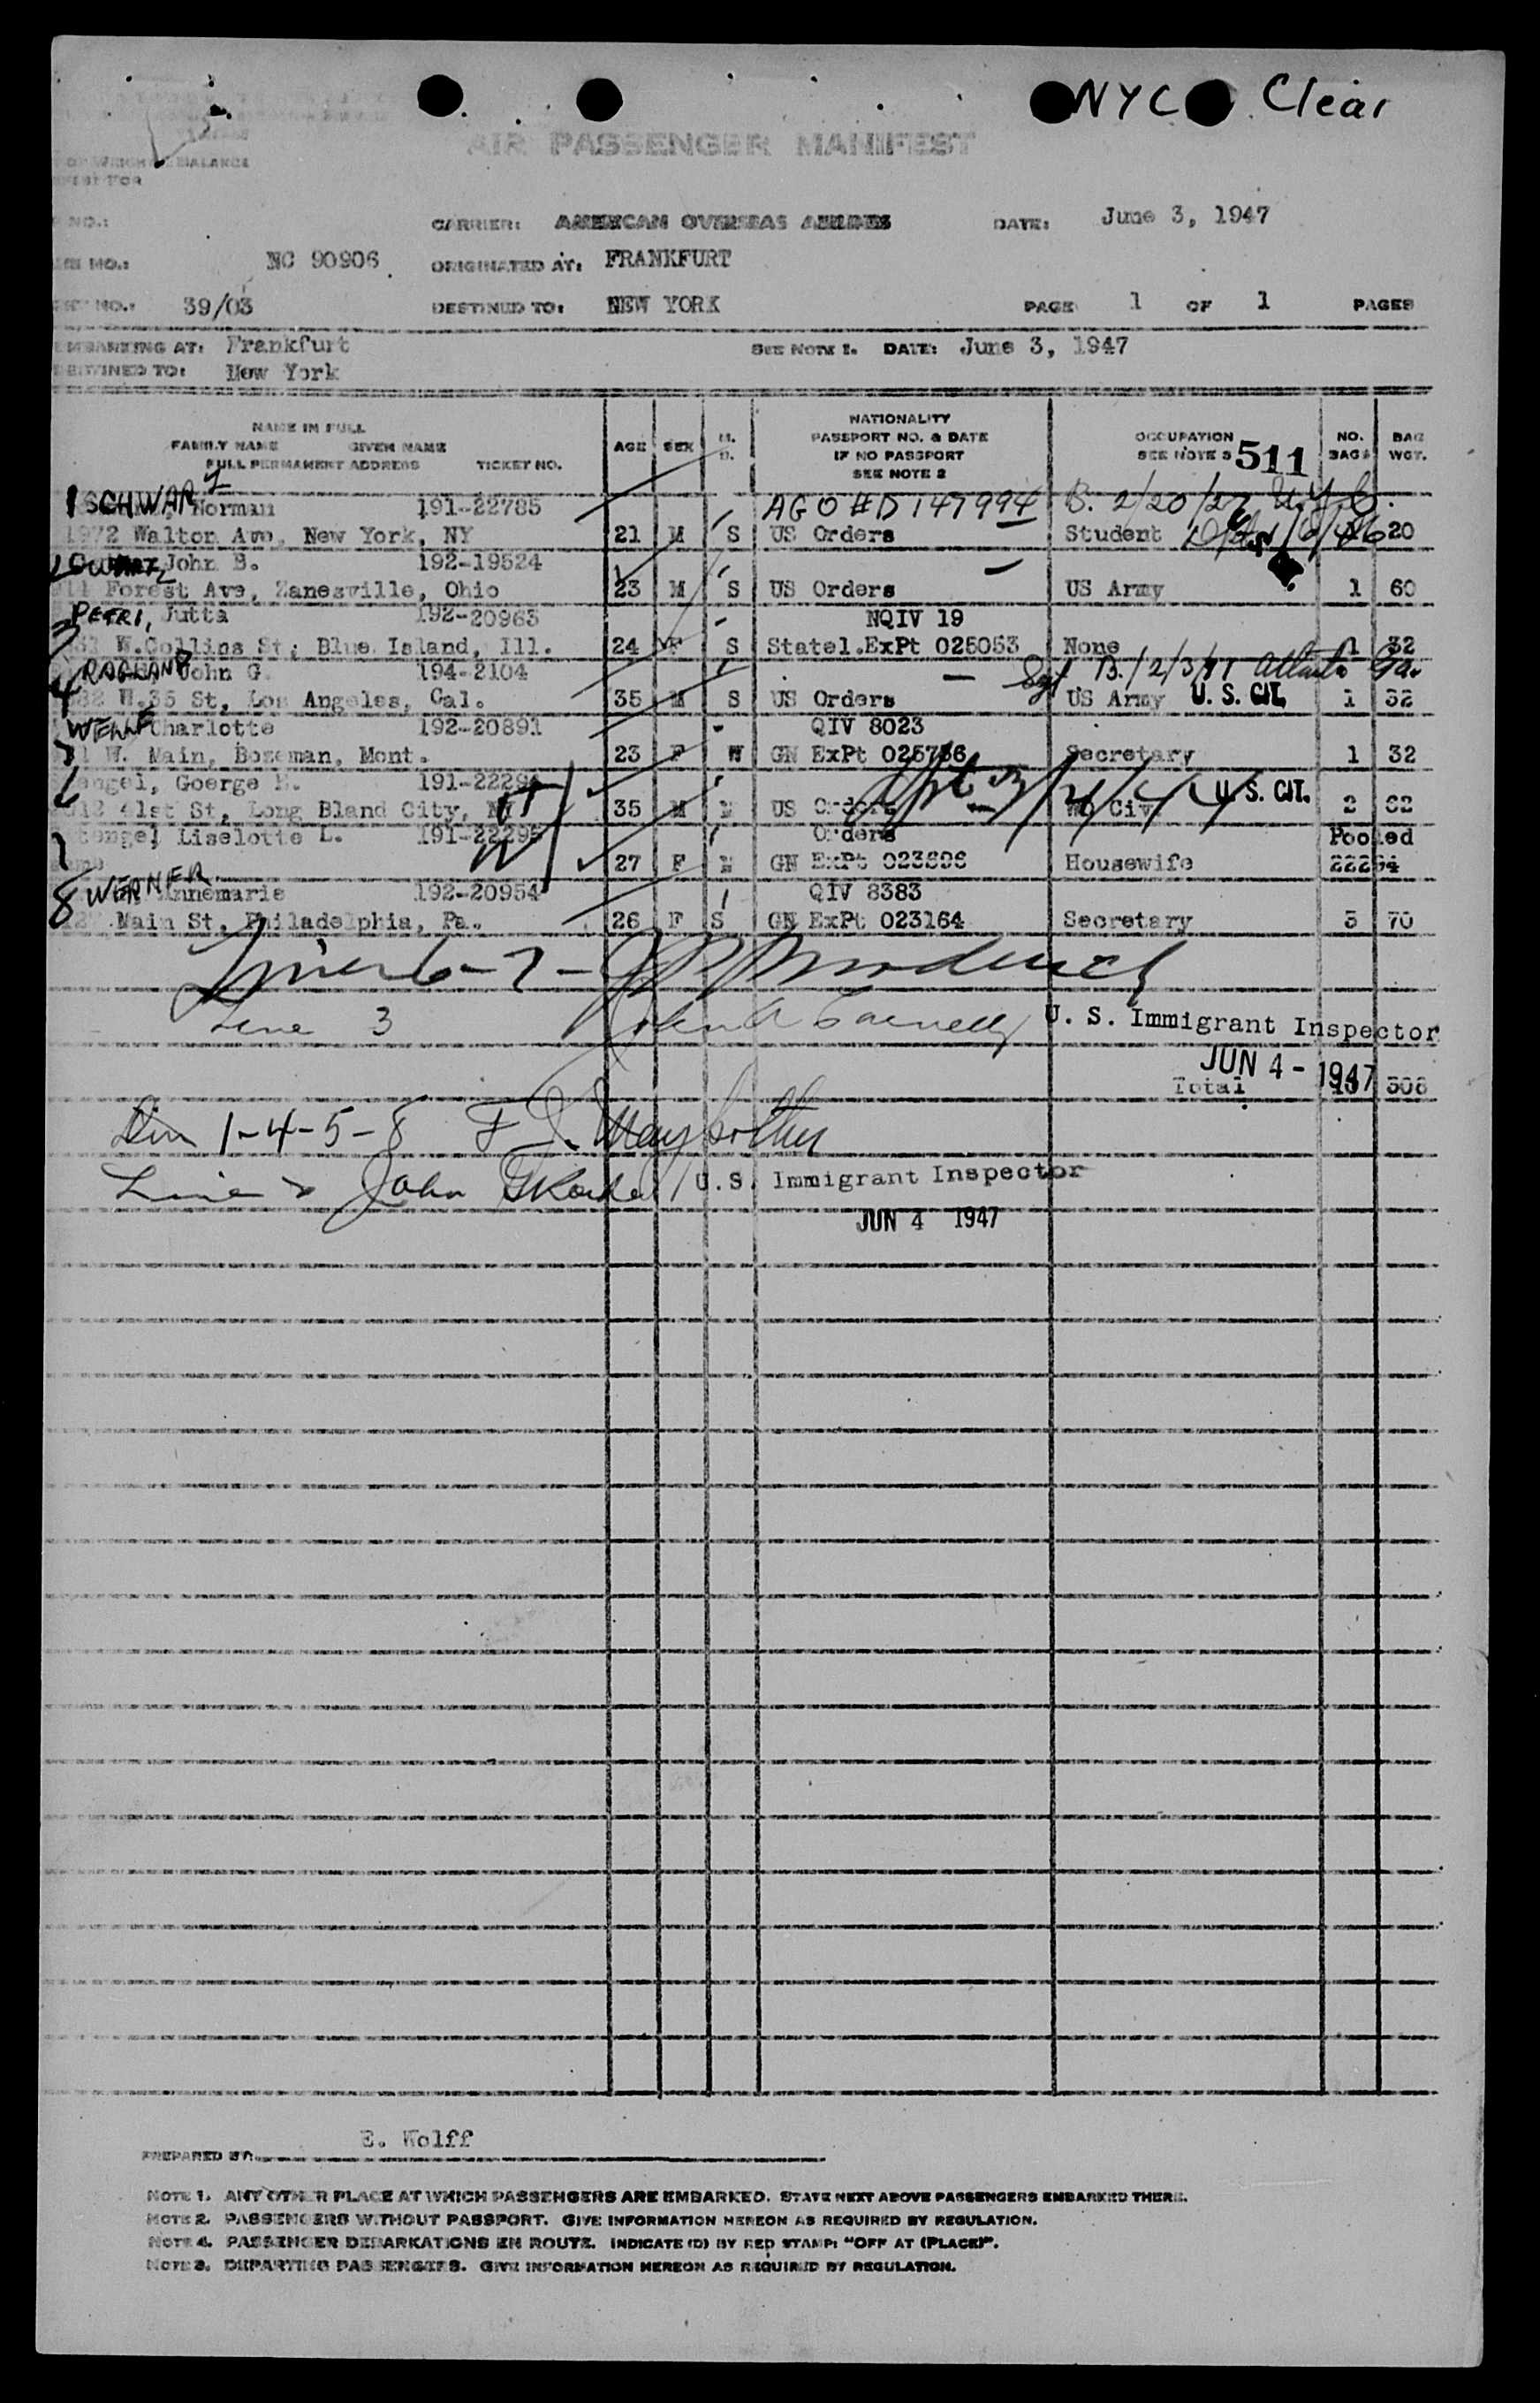 NYC Clear
AIR PASSENGER MANIFEST
BALANCE
NO.:
CARRIER: AMERICAN OVERSEAS AIRLINES DATE: June 3, 1947
NO.: NC 90906 ORIGINATED AT: FRANKFURT
NO.: 39/03 DESTINED TO: NEW YORK PAGE 1 OF 1 PAGES
EMBARKING AT: Frankfurt SEE NOTE 1. DATE: June 3, 1947
DESTINED TO: New York
NAME IN FULL
FAMILY NAME GIVEN NAME
FULL PERMANENT ADDRESS TICKET NO.
AGE SEX M. NATIONALITY
PASSPORT NO. & DATE
IF NO PASSPORT
SEE NOTE 2
OCCUPATION
SEE NOTE 3 511
NO. BAGS BAG WGT.
1 SCHWARZ Norman 191-22785 AGO #D147994 B. 2/20/27 N.Y.C.
1972 Walton Ave, New York, NY 21 M S US Orders Student 20
John B. 192-19524
Forest Ave, Zanesville, Ohio 23 M S US Orders US Army 1 60
3 PETRI, Jutta 192-20963 NQIV 19
W.Collins St, Blue Island, Ill. 24 F S Statel.ExPt 025053 None 1 32
4 RAGLAND John G. 194-2104 Sgt. B. Atlanta Ga.
W.35 St, Los Angeles, Cal. 35 M S US Orders US Army U.S. CIT. 1 32
WELLE Charlotte 192-20891 QIV 8023
W. Main, Bozeman, Mont. 23 F W GN ExPt 025786 Secretary 1 32
engel, Goerge 191-22294
41st St, Long Bland City, NY 35 M US Orders Civ U.S. CIT. 2 62
tengel Liselotte L. 191-22295 Orders Pooled
27 F GN ExPt 023606 Housewife 22294
8 WERNER Annemarie 192-20954 QIV 8383
Main St, Philadelphia, Pa. 26 F S GN ExPt 023164 Secretary 3 70
Lines 6-7-
Line 3 U. S. Immigrant Inspector
JUN 4 - 1947
Total 308
1-4-5-8
Line John U.S. Immigrant Inspector
JUN 4 1947
PREPARED BY: E. Wolff
NOTE 1. ANY OTHER PLACE AT WHICH PASSENGERS ARE EMBARKED. STATE NEXT ABOVE PASSENGERS EMBARKED THERE.
NOTE 2. PASSENGERS WITHOUT PASSPORT. GIVE INFORMATION HEREON AS REQUIRED BY REGULATION.
NOTE 4. PASSENGER DEBARKATIONS EN ROUTE. INDICATE (D) BY RED STAMP: "OFF AT (PLACE)".
NOTE 3. DEPARTING PASSENGERS. GIVE INFORMATION HEREON AS REQUIRED BY REGULATION.